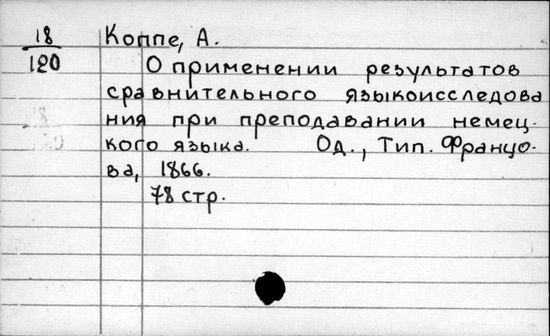 18
120
Коппе, А.
О применении результатов
сравнительного языкоисследова
ния при преподавании немец-
кого языка. Од., Тип. Францо-
ва, 1866.
78 стр.